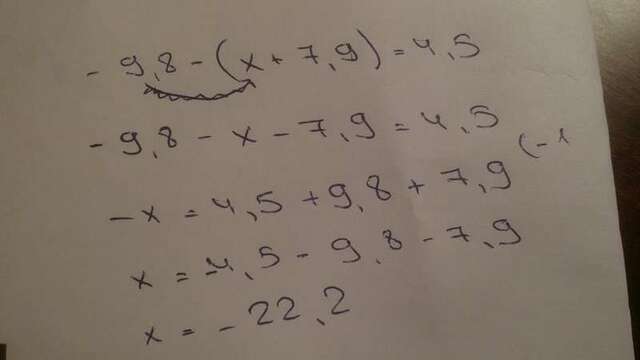 - 9,8 - (x + 7,9) = 4,5
- 9,8 - x - 7,9 = 4,5
-x = 4,5 + 9,8 + 7,9 (-1
x = -4,5 - 9,8 - 7,9
x = - 22,2